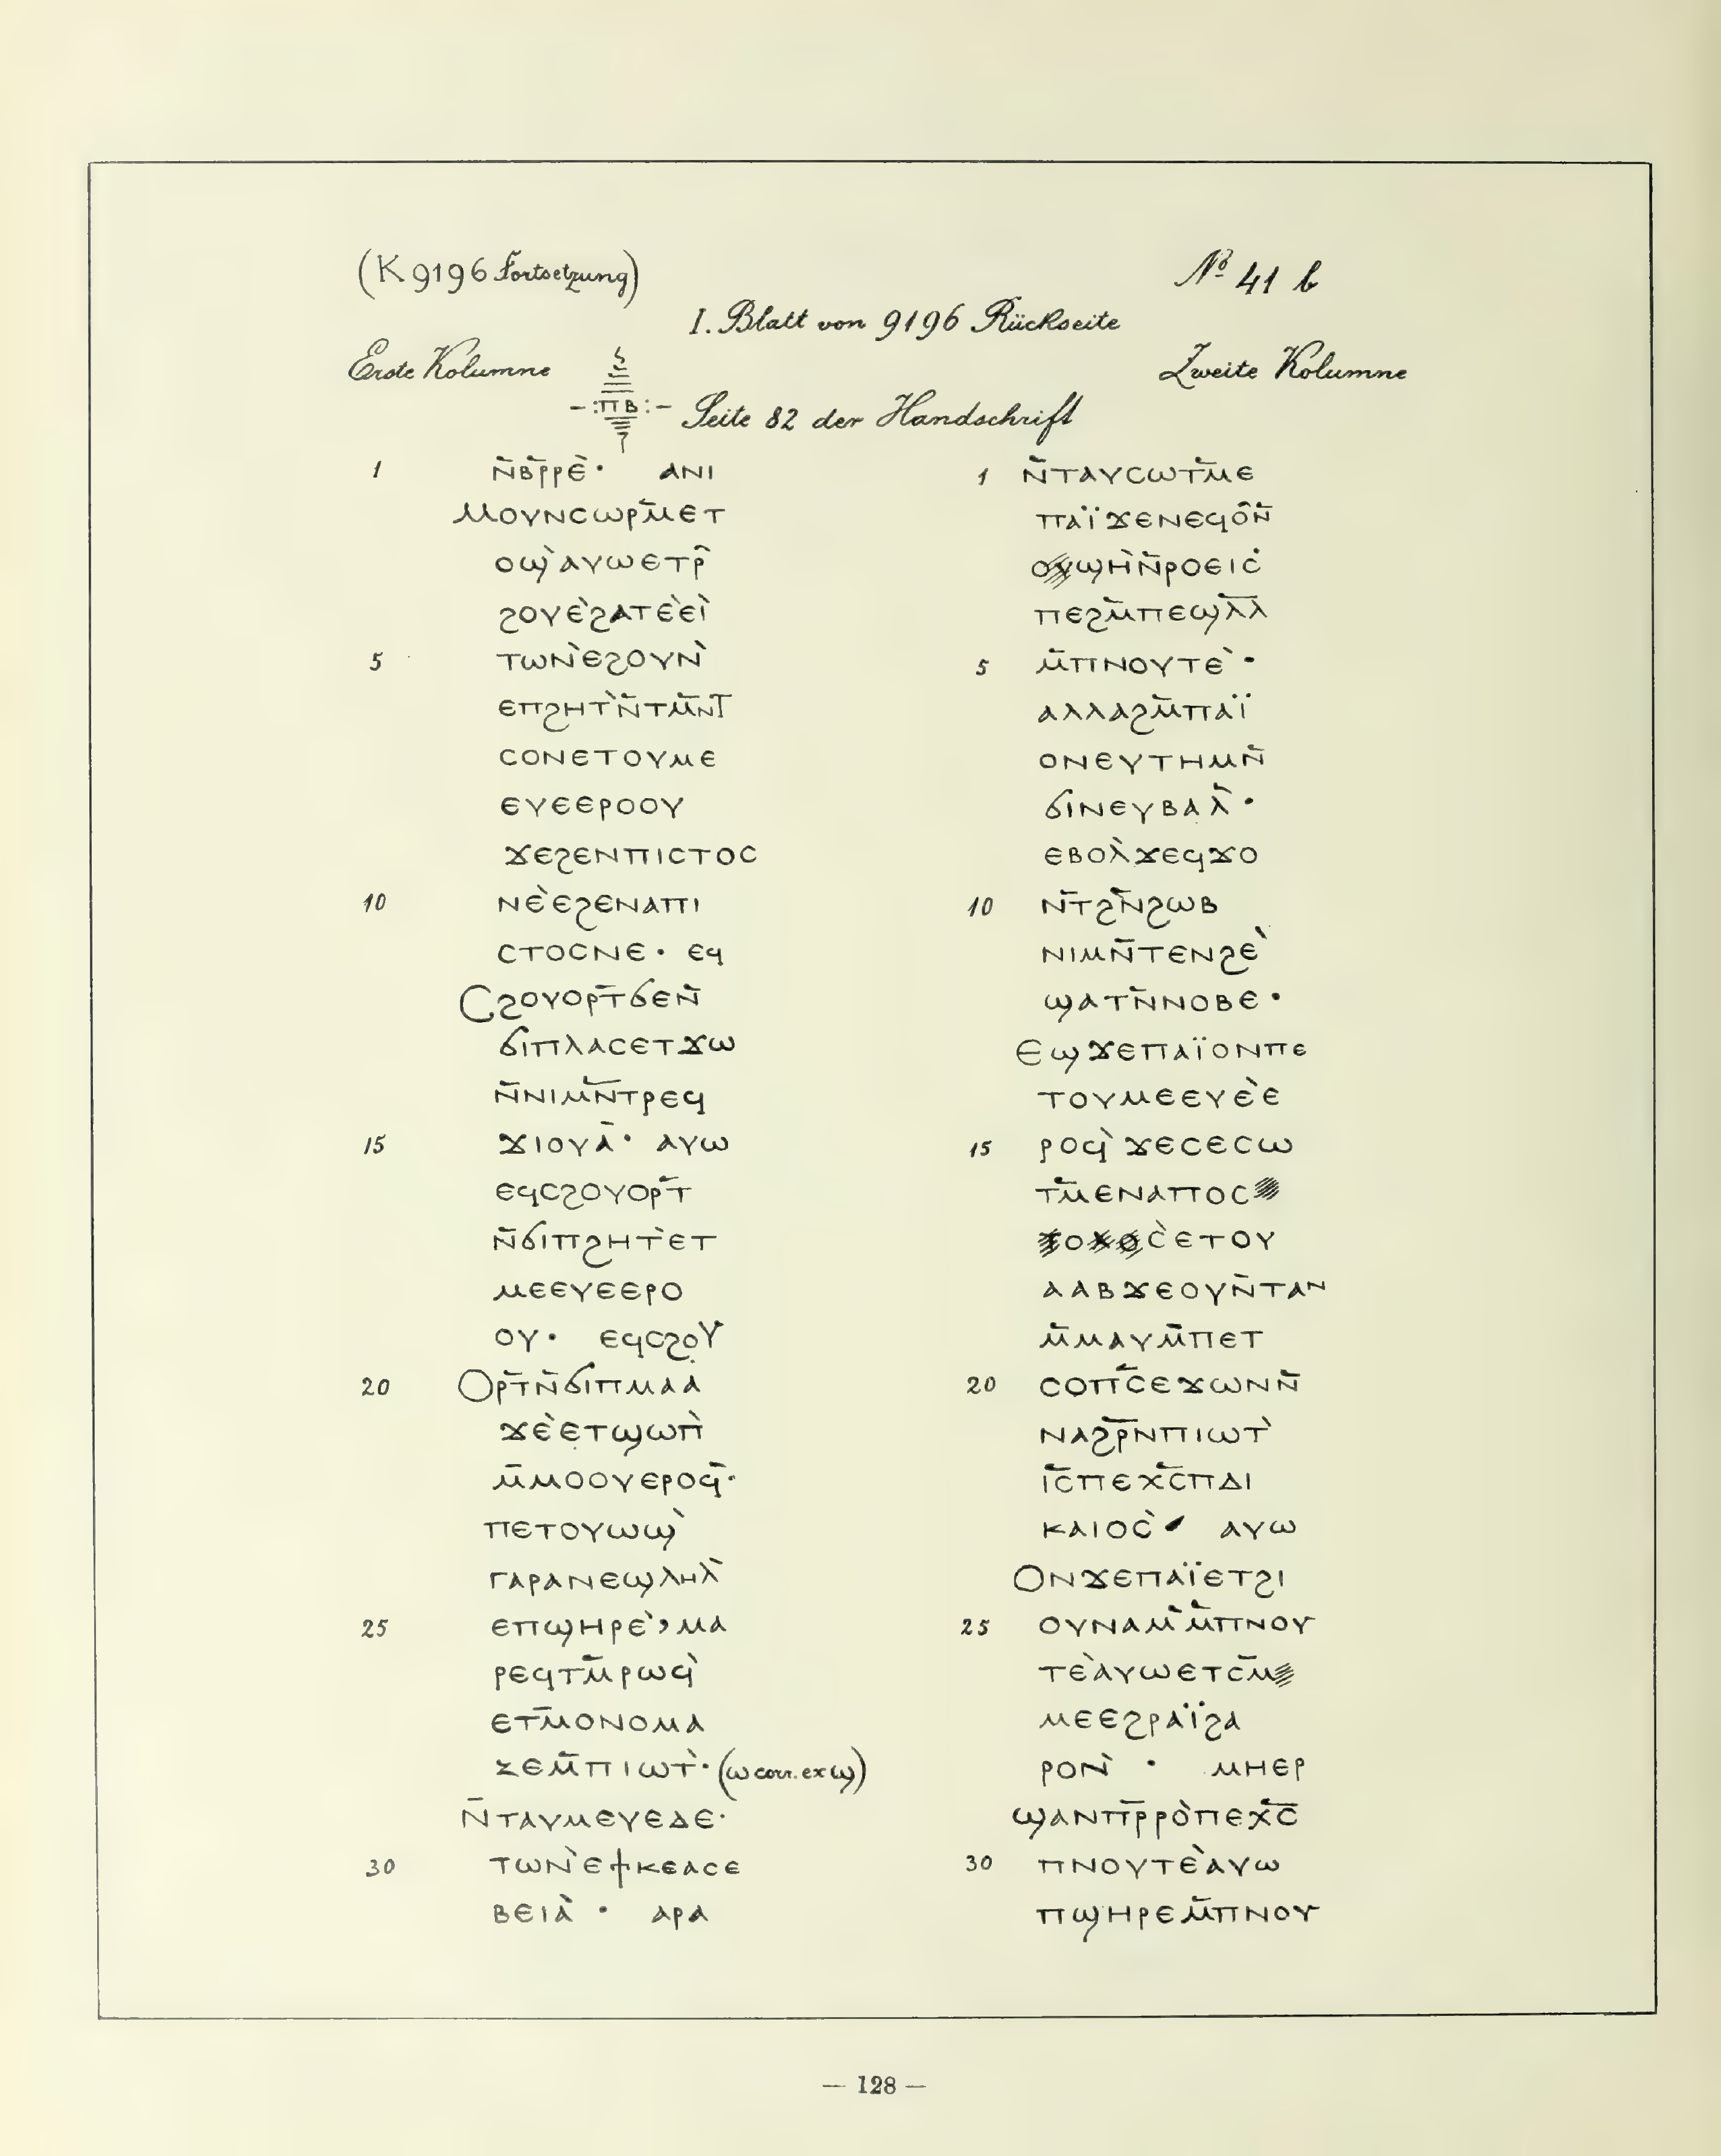 (K 9196 Fortsetzung)
№ 41 b
I. Blatt von 9196 Rückseite
Erste Kolumne
Zweite Kolumne
-:ⲠⲂ:- Seite 82 der Handschrift
1 ⲛ̄ⲃⲣ̄ⲣⲉ̀· ⲁⲛⲓ
ⲙⲟⲩⲛⲥⲱⲣⲙ̄ⲉⲧ
ⲟϣ̀ⲁⲩⲱⲉⲧⲣ̄
ϩⲟⲩⲉ̀ϩⲁⲧⲉ̀ⲉⲓ̀
5 ⲧⲱⲛ̀ⲉϩⲟⲩⲛ̀
ⲉⲡϩⲏⲧ̀ⲛ̄ⲧⲙ̄ⲛⲧ
ⲥⲟⲛⲉⲧⲟⲩⲙⲉ
ⲉⲩⲉⲉⲣⲟⲟⲩ
ϫⲉϩⲉⲛⲡⲓⲥⲧⲟⲥ
10 ⲛⲉ̀ⲉϩⲉⲛⲁⲡⲓ
ⲥⲧⲟⲥⲛⲉ· ⲉϥ
Ⲥϩⲟⲩⲟⲣⲧ̄ϭⲉⲛ̄
ϭⲓⲡⲗⲁⲥⲉⲧϫⲱ
ⲛ̄ⲛⲓⲙⲛ̄ⲧⲣⲉϥ
15 ϫⲓⲟⲩⲁ̀· ⲁⲩⲱ
ⲉϥⲥϩⲟⲩⲟⲣⲧ̄
ⲛ̄ϭⲓⲡϩⲏⲧ̀ⲉⲧ
ⲙⲉⲉⲩⲉⲉⲣⲟ
ⲟⲩ· ⲉϥⲥϩⲟⲩ
20 Ⲟⲣⲧ̄ⲛ̄ϭⲓⲡⲙⲁⲁ
ϫⲉ̀ⲉⲧϣⲱⲡ̀
ⲙ̄ⲙⲟⲟⲩⲉⲣⲟϥ̀·
ⲡⲉⲧⲟⲩⲱϣ̀
ⲅⲁⲣⲁⲛⲉϣⲗⲏⲗ̀
25 ⲉⲡϣⲏⲣⲉ̀ʼⲙⲁ
ⲣⲉϥⲧⲙ̄ⲣⲱϥ̀
ⲉⲧⲙ̄ⲟⲛⲟⲙⲁ
ⲍⲉⲙ̄ⲡⲓⲱⲧ̀· (ⲱ corr. ex ϣ)
ⲛ̄ⲧⲁⲩⲙⲉⲩⲉⲇⲉ·
30 ⲧⲱⲛ̀ⲉϯⲕⲉⲁⲥⲉ
ⲃⲉⲓⲁ̀ · ⲁⲣⲁ
1 ⲛ̄ⲧⲁⲩⲥⲱⲧⲙ̄ⲉ
ⲡⲁⲓ̈ϫⲉⲛⲉϥⲟ̂ⲛ̄
ⲟⲩϣⲏ̀ⲛ̄ⲣⲟⲉⲓⲥ̀
ⲡⲉϩⲙ̄ⲡⲉϣⲗ̄ⲗ̄
5 ⲙ̄ⲡⲛⲟⲩⲧⲉ̀·
ⲁⲗⲗⲁϩⲙ̄ⲡⲁⲓ̈
ⲟⲛⲉⲩⲧⲏⲙⲛ̄
ϭⲓⲛⲉⲩⲃⲁⲗ̀·
ⲉⲃⲟⲗ̀ϫⲉϥϫⲟ
10 ⲛ̄ⲧϩⲛ̄ϩⲱⲃ
ⲛⲓⲙⲛ̄ⲧⲉⲛϩⲉ̀
ϣⲁⲧⲛ̄ⲛⲟⲃⲉ·
Ⲉϣϫⲉⲡⲁⲓ̈ⲟⲛⲡⲉ
ⲧⲟⲩⲙⲉⲉⲩⲉ̀ⲉ
15 ⲣⲟϥ̀ϫⲉⲥⲉⲥⲱ
ⲧⲙ̄ⲉⲛⲁⲡⲟⲥ
ⲧⲟⲗⲟⲥ̀ⲉⲧⲟⲩ
ⲁⲁⲃϫⲉⲟⲩⲛ̄ⲧⲁⲛ
ⲙ̄ⲙⲁⲩⲙ̄ⲡⲉⲧ
20 ⲥⲟⲡⲥ̄ⲉϫⲱⲛⲛ̄
ⲛⲁϩⲣ̄ⲛⲡⲓⲱⲧ̀
ⲓ̄ⲥ̄ⲡⲉⲭ̄ⲥ̄ⲡⲇⲓ
ⲕⲁⲓⲟⲥ̀ ⲁⲩⲱ
Ⲟⲛϫⲉⲡⲁⲓ̈ⲉⲧϩⲓ
25 ⲟⲩⲛⲁⲙ̀ⲙ̄ⲡⲛⲟⲩ
ⲧⲉ̀ⲁⲩⲱⲉⲧⲥⲙ̄
ⲙⲉⲉϩⲣⲁⲓ̈ϩⲁ
ⲣⲟⲛ̀ · ⲙⲏⲉⲣ
ϣⲁⲛⲡⲣ̄ⲣⲟ̀ⲡⲉⲭ̄ⲥ̄
30 ⲡⲛⲟⲩⲧⲉ̀ⲁⲩⲱ
ⲡϣⲏⲣⲉⲙ̄ⲡⲛⲟⲩ
— 128 —